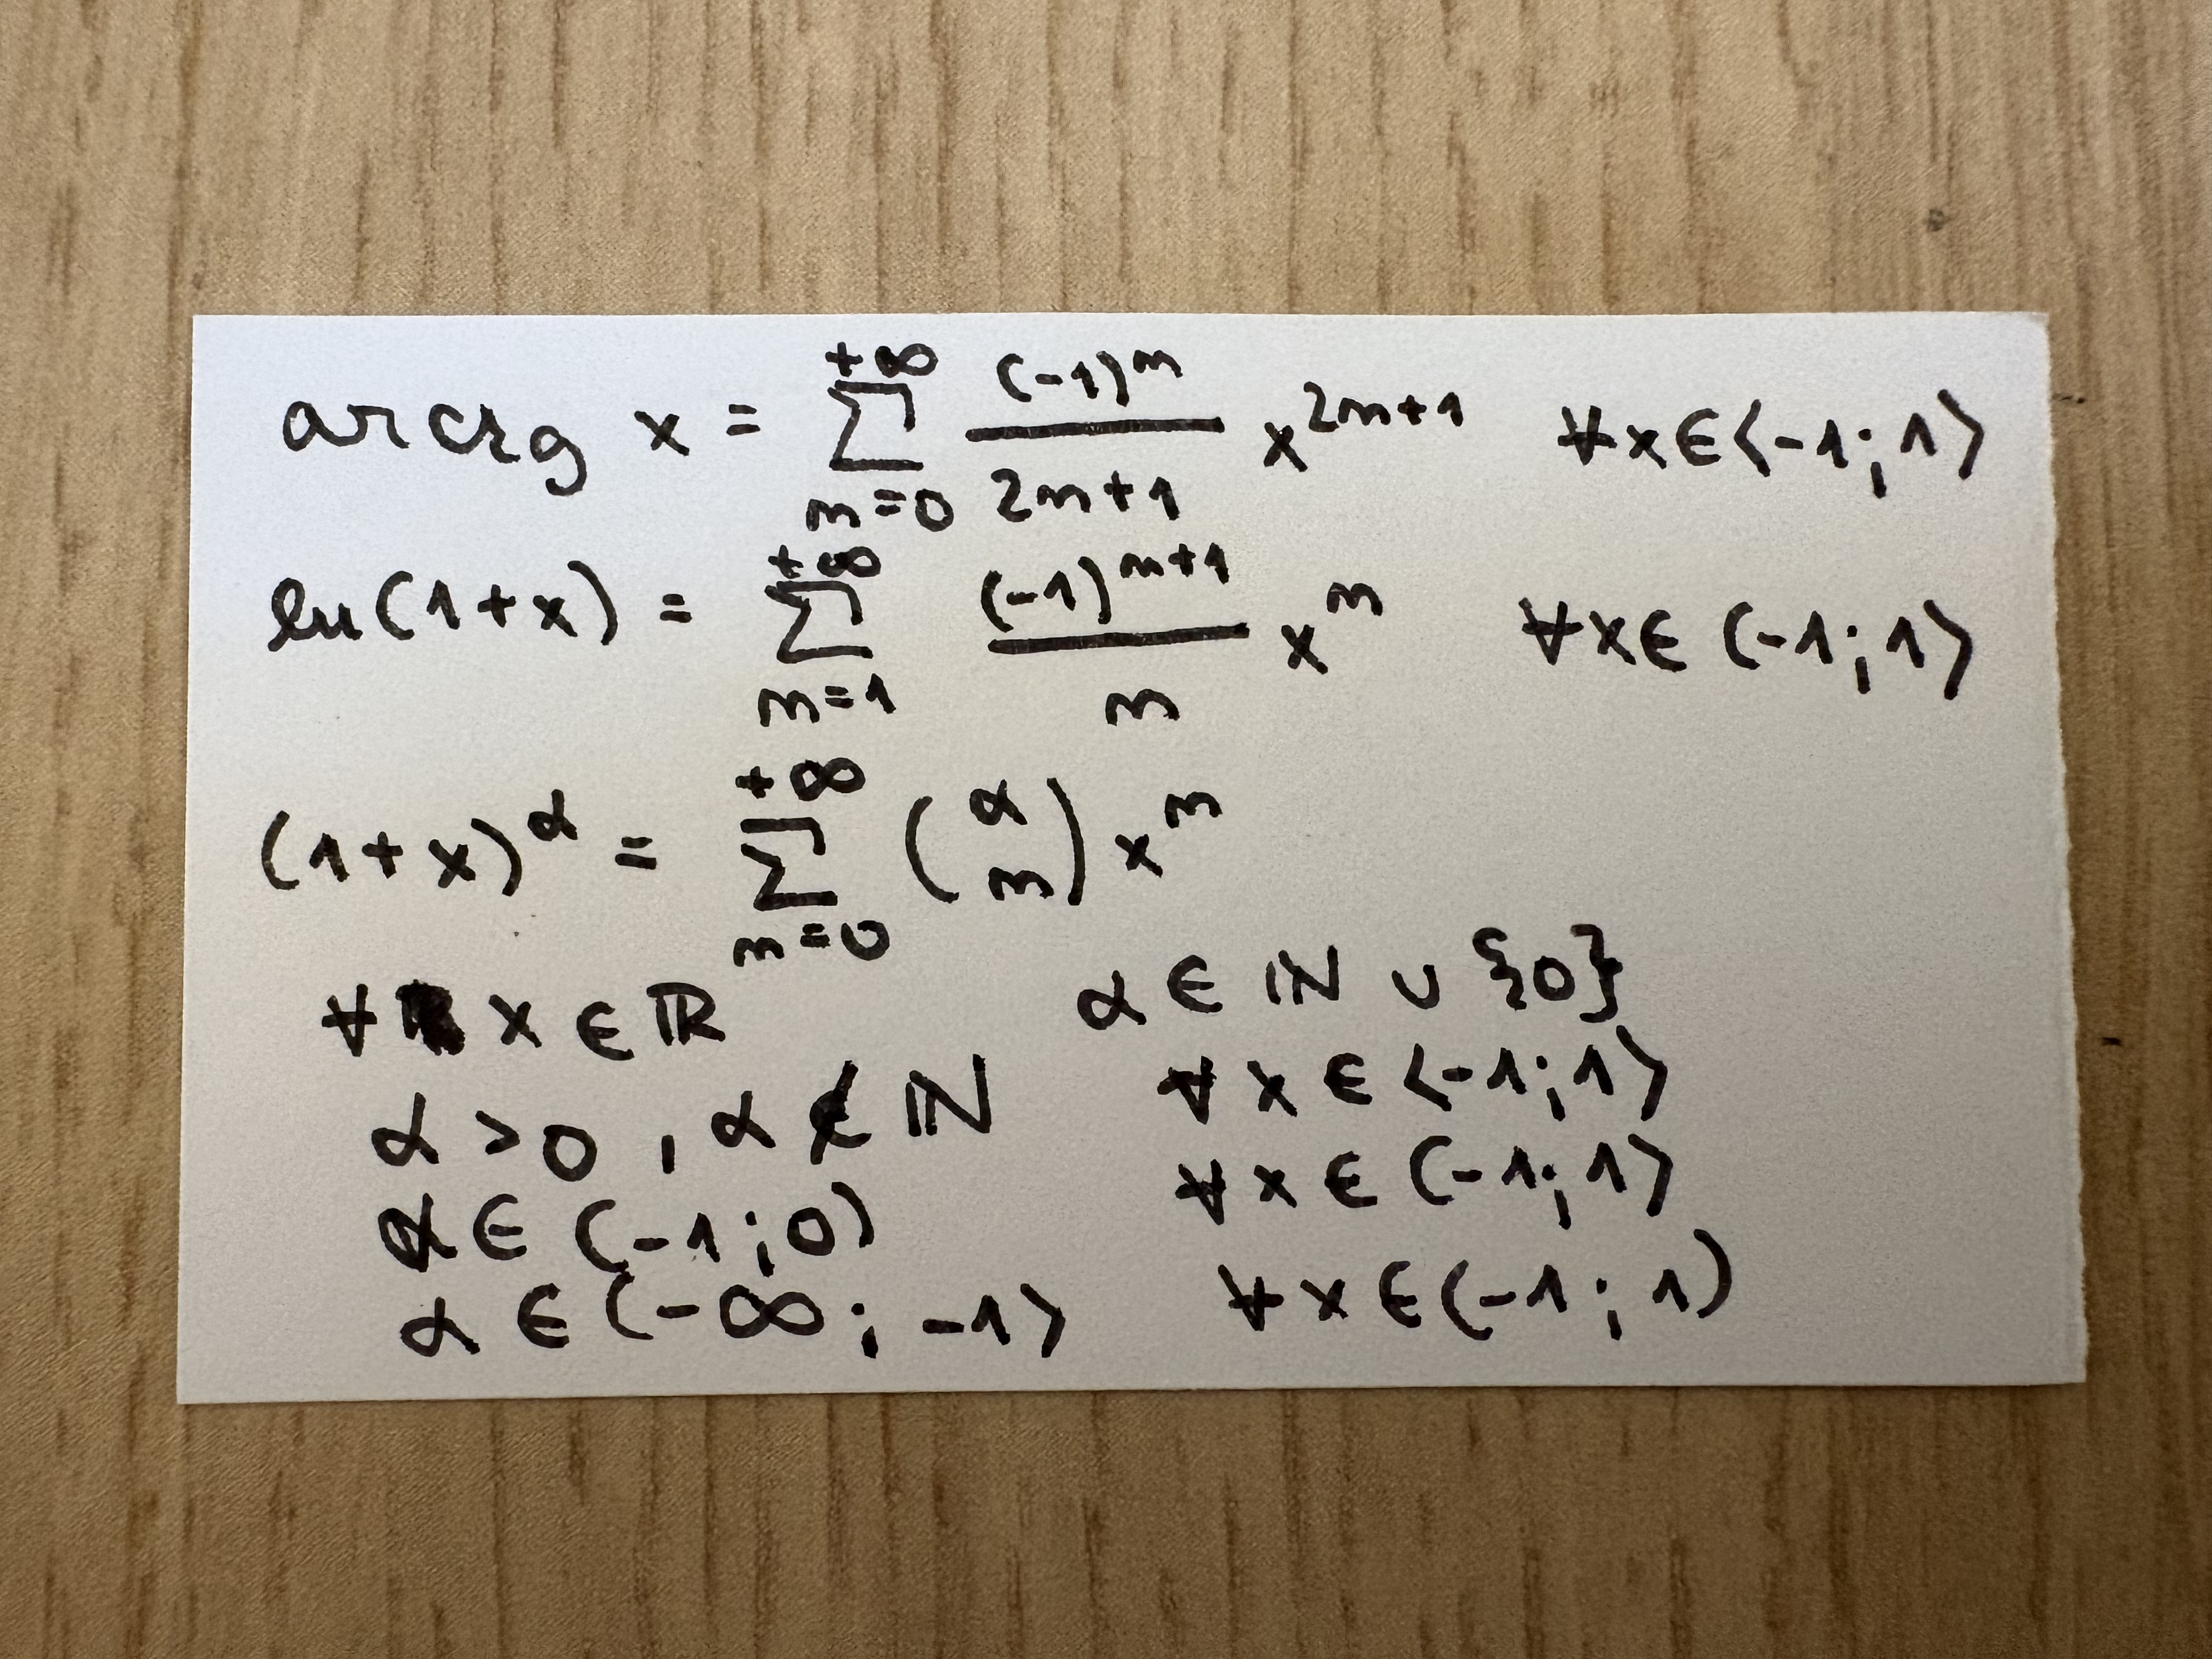 arctg x = ∑_{n=0}^{+∞} \frac{(-1)^n}{2n+1} x^{2n+1} ∀x∈⟨-1;1⟩
ln(1+x) = ∑_{n=1}^{+∞} \frac{(-1)^{n+1}}{n} x^n ∀x∈(-1;1⟩
(1+x)^α = ∑_{n=0}^{+∞} \binom{α}{n} x^n
∀ x ∈ ℝ α ∈ ℕ ∪ {0}
α > 0, α ∉ ℕ ∀ x ∈ ⟨-1;1⟩
α ∈ (-1;0) ∀ x ∈ (-1;1⟩
α ∈ (-∞; -1⟩ ∀ x ∈ (-1;1)